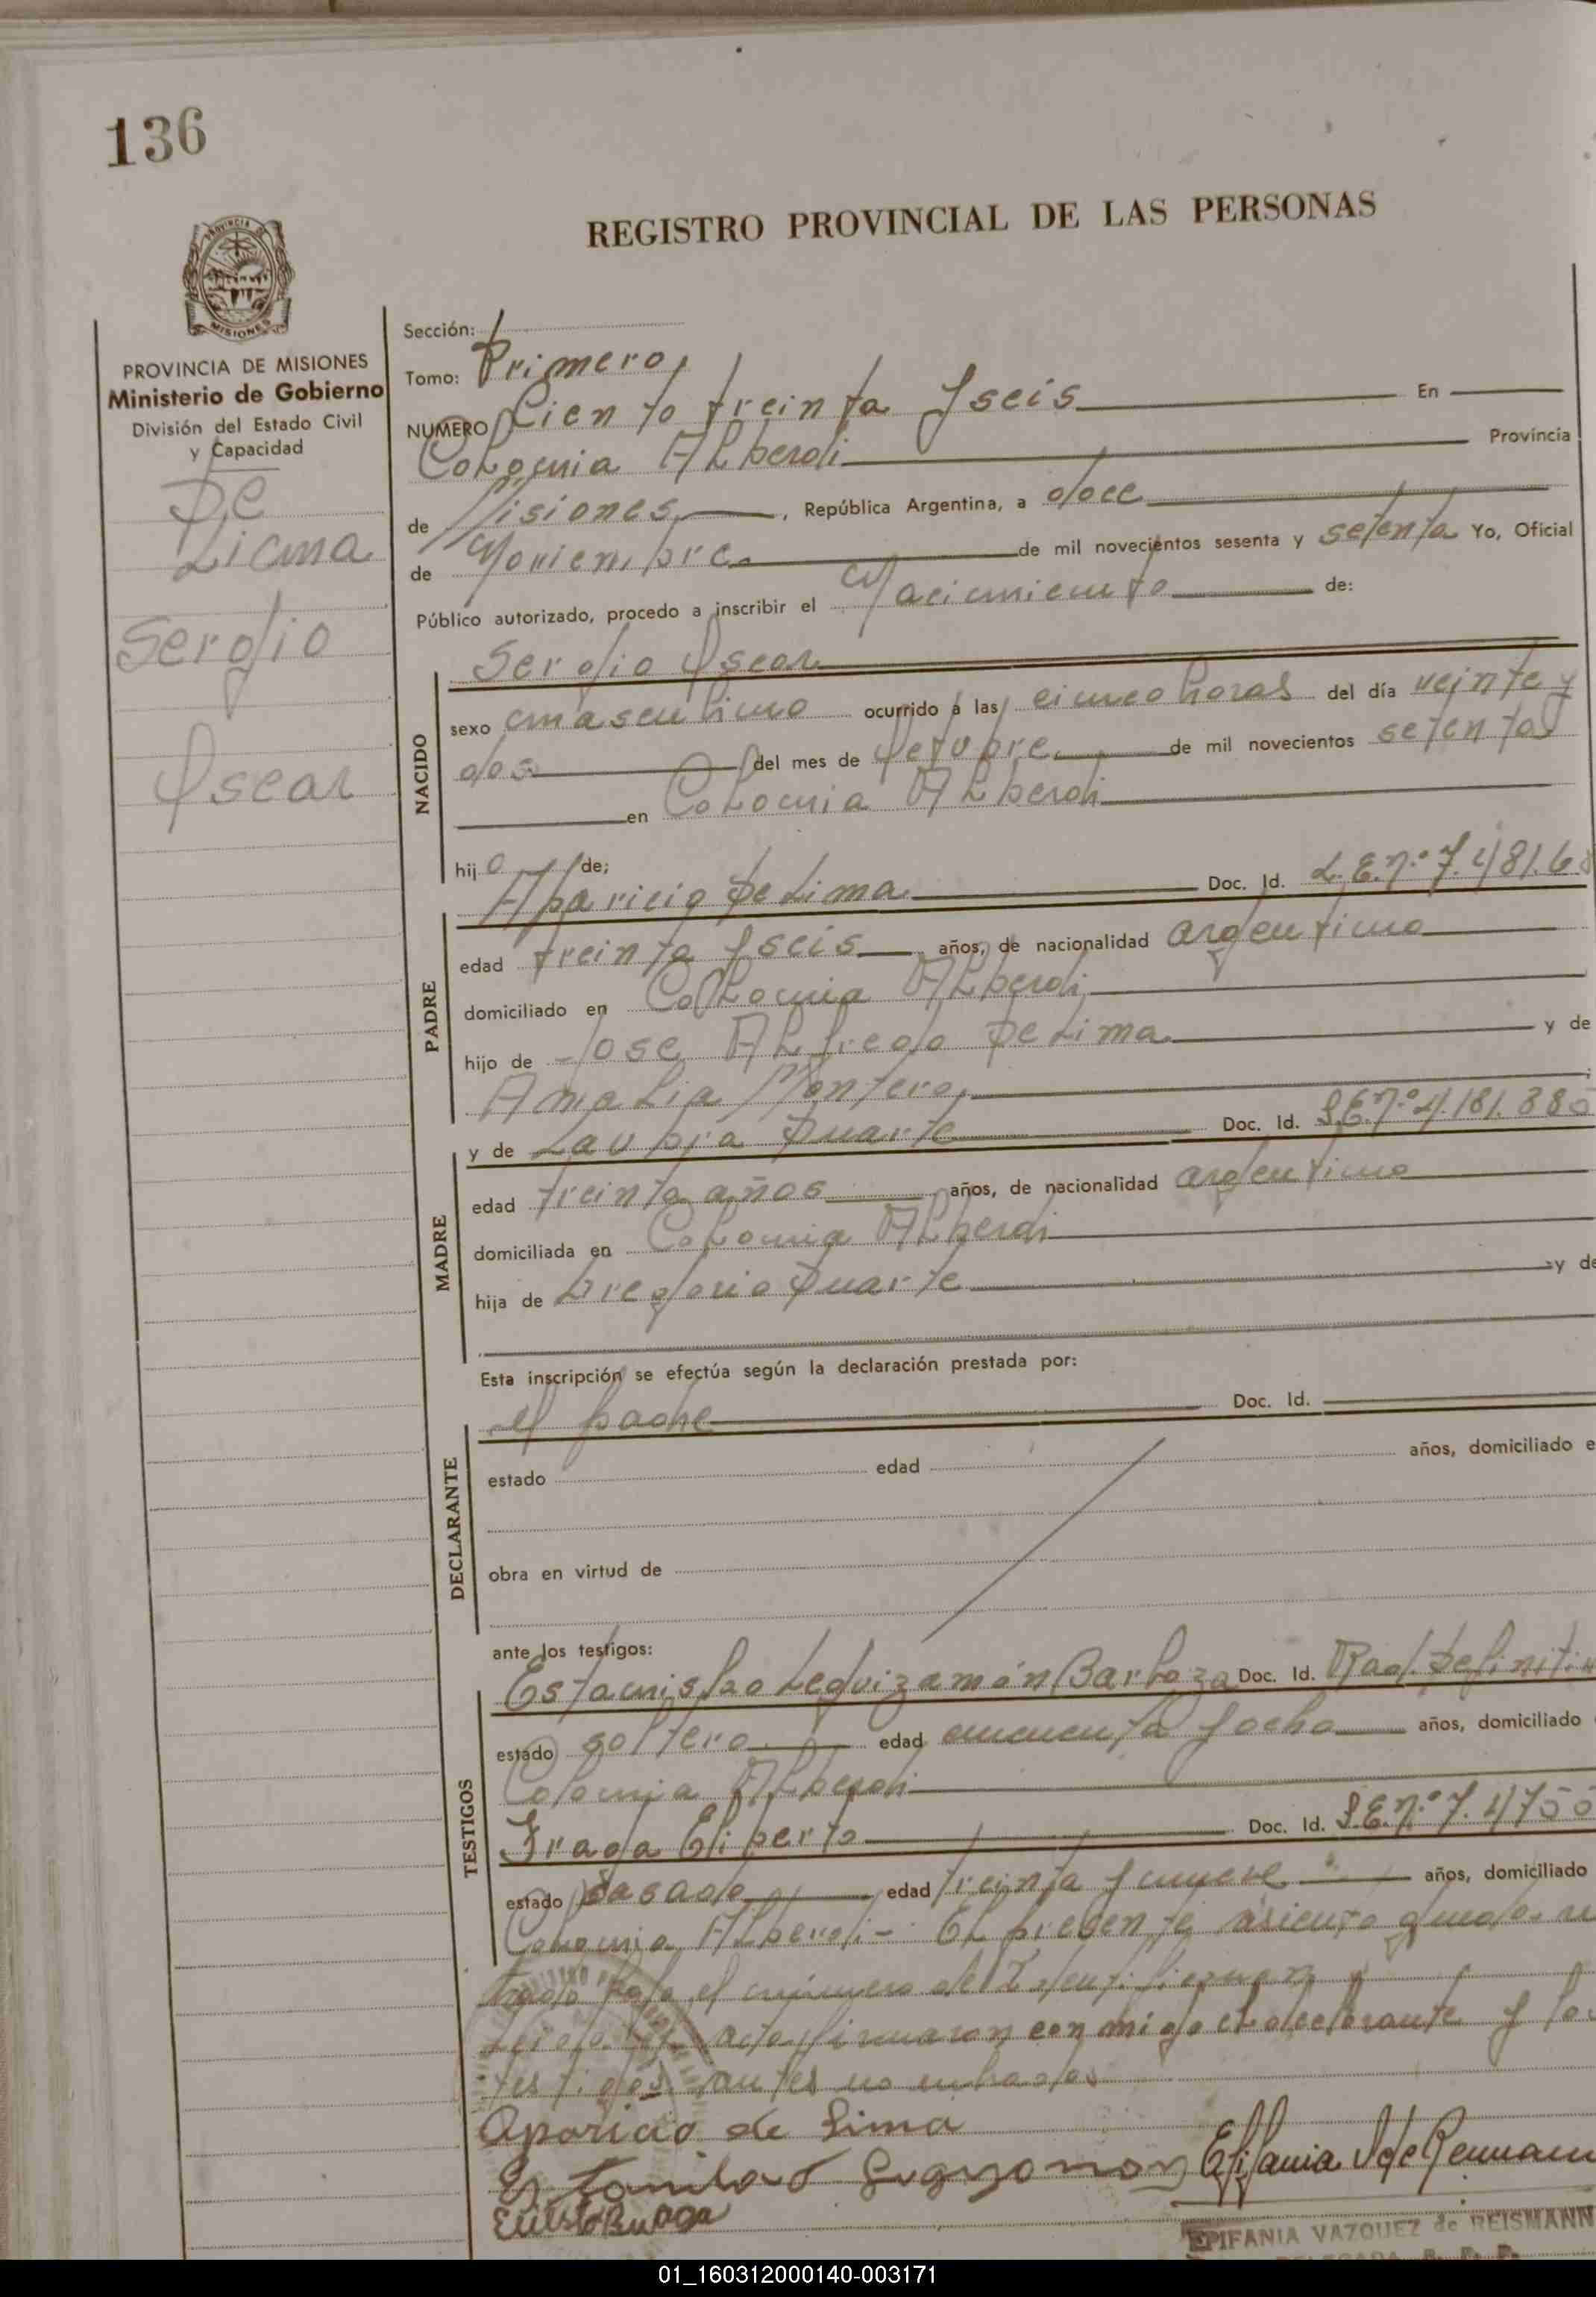 136
REGISTRO PROVINCIAL DE LAS PERSONAS
MISIONES
PROVINCIA DE MISIONES
Ministerio de Gobierno
División del Estado Civil
y Capacidad
De
Lima
Sergio
Oscar
Sección:
Tomo: Primero,
NUMERO Ciento treinta y seis En
Colonia Alberdi Provincia
de Misiones, República Argentina, a doce
de Noviembre de mil novecientos sesenta y setenta Yo, Oficial
Público autorizado, procedo a inscribir el Nacimiento de:
Sergio Oscar
NACIDO
sexo masculino ocurrido a las cinco horas del día veinte y
dos del mes de Octubre de mil novecientos setenta
en Colonia Alberdi
hijo de;
Aparicio De Lima Doc. Id. L.E.Nº 7.481.6
PADRE
edad treinta y seis años, de nacionalidad argentino
domiciliado en Colonia Alberdi
hijo de Jose Alfredo De Lima y de
Amalia Montero,
y de Laura Duarte Doc. Id. L.E.Nº 4.181.880
MADRE
edad treinta años años, de nacionalidad argentino
domiciliada en Colonia Alberdi
hija de Gregorio Duarte y de
Esta inscripción se efectúa según la declaración prestada por:
el padre Doc. Id.
DECLARANTE
estado edad años, domiciliado e
obra en virtud de
ante los testigos:
Estanislao Leguizamón Barboza Doc. Id. Rad. Definitiv
TESTIGOS
estado soltero edad cincuenta y ocho años, domiciliado
Colonia Alberdi
Fraga Eliberto Doc. Id. L.E.Nº 7.4750
estado casado edad treinta y nueve años, domiciliado
Colonia Alberdi - El presente asiento queda re
bajo el número de
Leida el acta firmaron conmigo el declarante y los
testigos antes nombrados
Aparicio de Lima
Epifania V de Reismann
EPIFANIA VAZQUEZ de REISMANN
DELEGADA R. P. P.
01_160312000140-003171